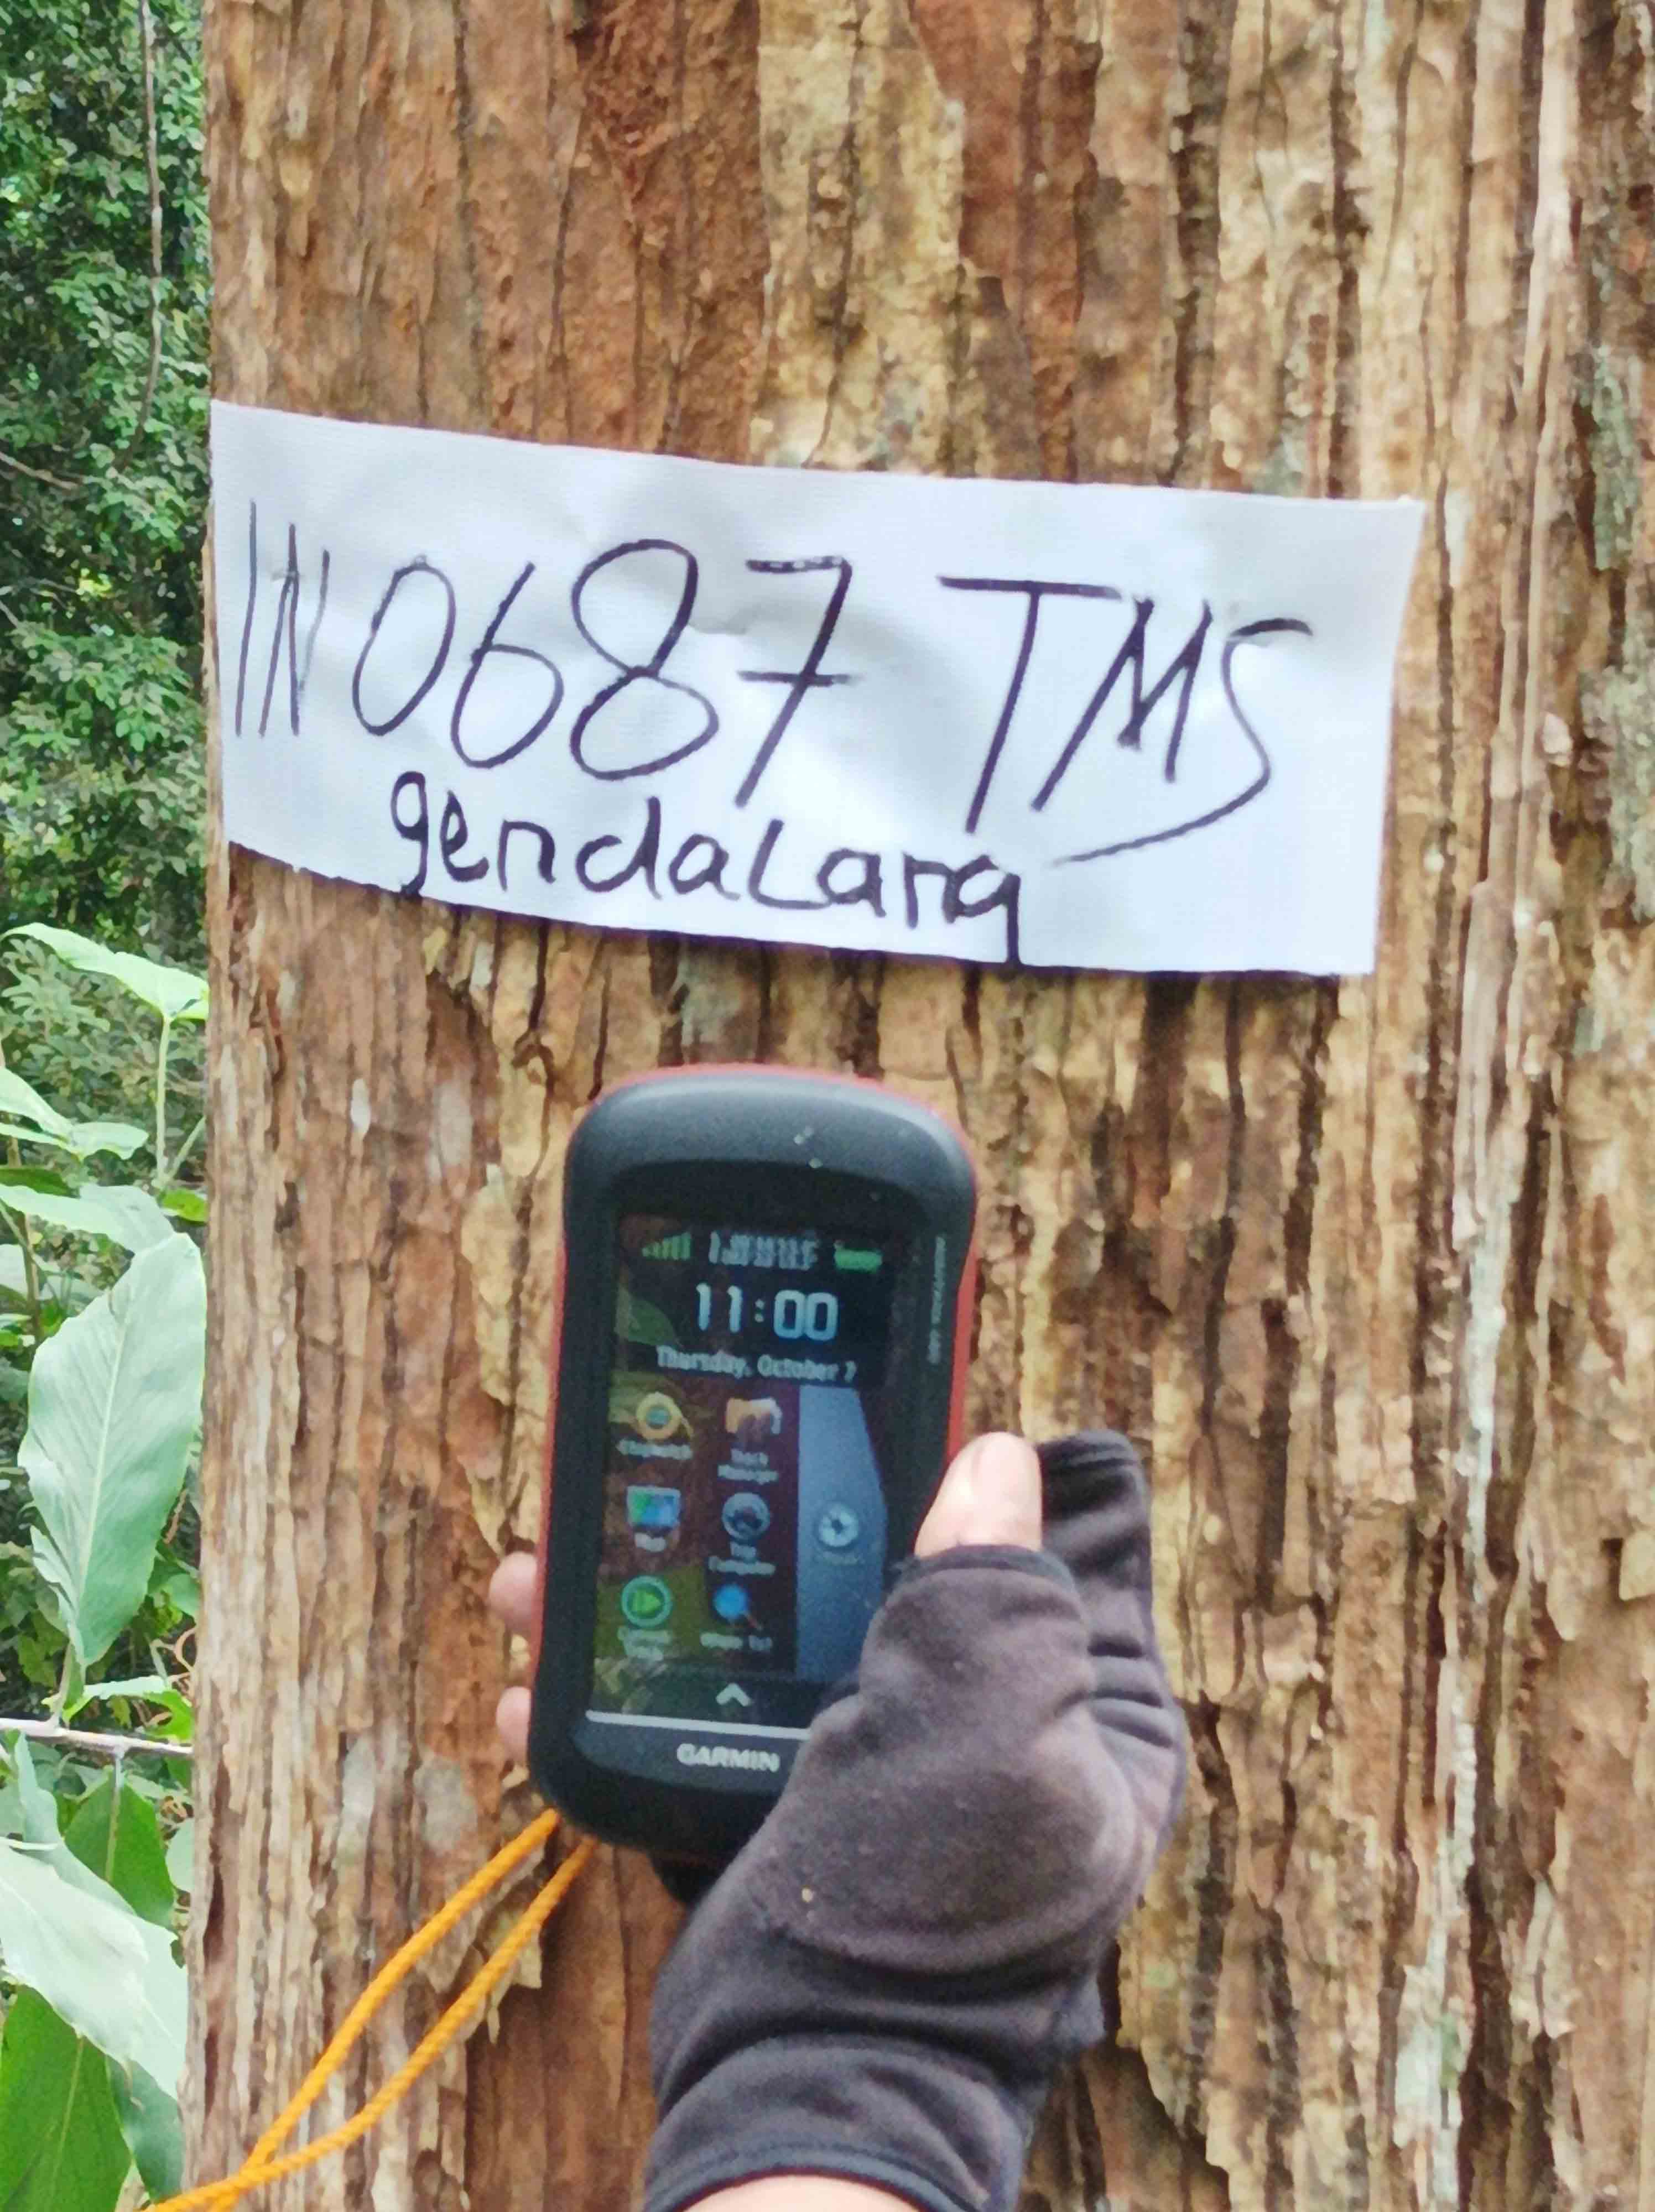 IN0687 TMS
gendaLang
11:00
Thursday, October 7
Track
Manager
Map
Trip
Computer
Where To?
GARMIN